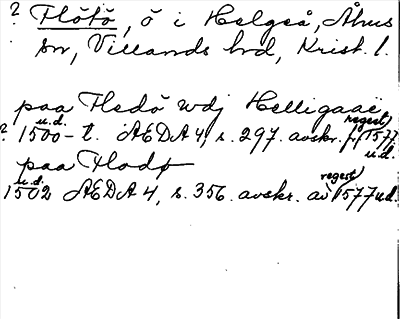 ? Flötö, ö i Helgeå, Åhus
sn, Villands hd, Krist. l.
paa Fledö wdj Helligaae
? 1500-t. u.d. ÆDA 4, s. 297. avskr. (regest) 1577 u.d.
paa Flodø
1502 u.d. ÆDA 4, s. 356. avskr. av (regest) 1577 u.d.